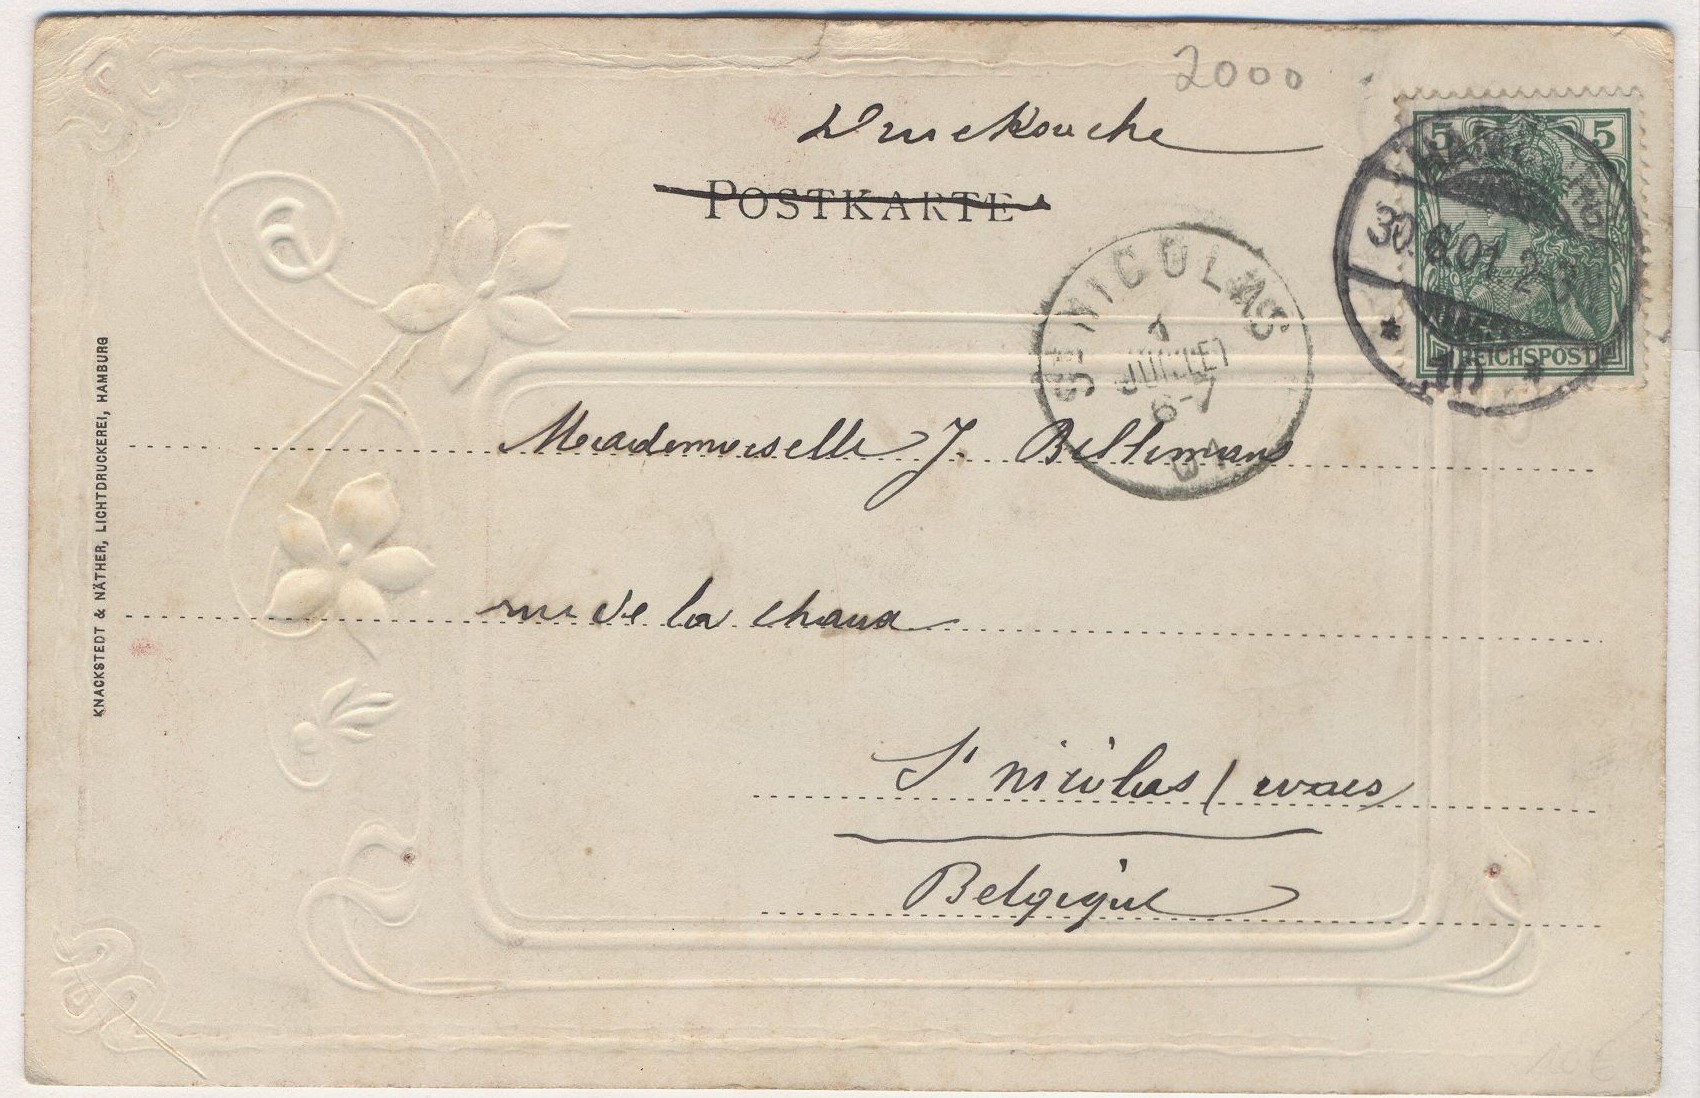 2000
Drucksache
POSTKARTE
5 5
30.6.01. 2-3
REICHSPOST
ST NICOLAS
1
JUILLET
6-7
Mademoiselle J. Bellemans
rue de la
St nicolas / waes
Belgique
KNACKSTEDT & NÄTHER, LICHTDRUCKEREI, HAMBURG
10 €